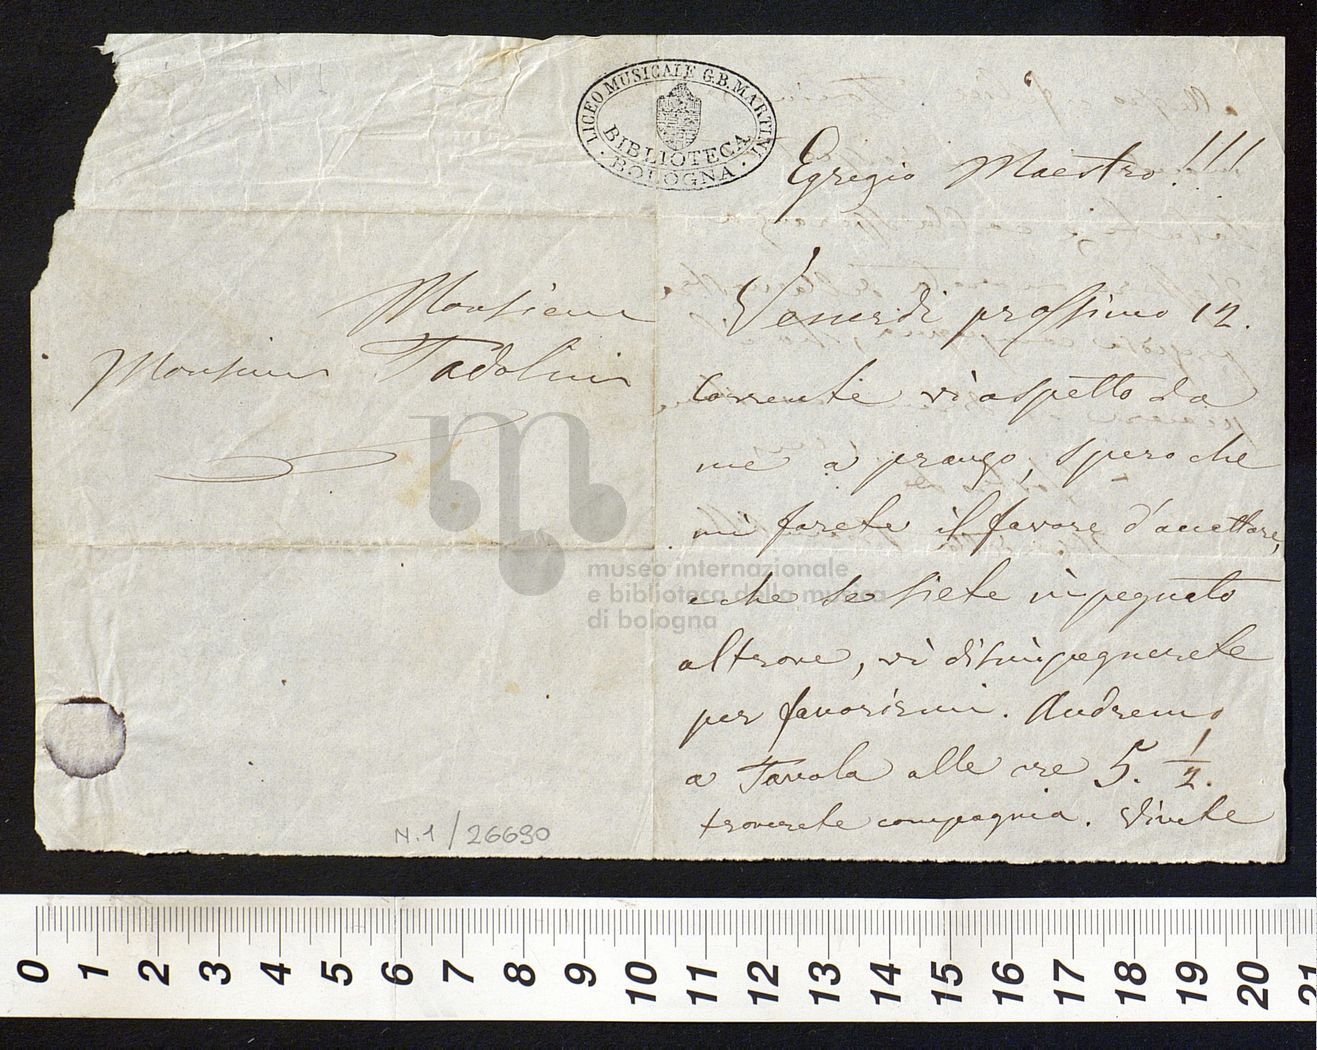 Monsieur
Monsieur Tadolini
N.1/26690
LICEO MUSICALE G.B. MARTINI
BIBLIOTECA
BOLOGNA
Egregio Maestro!!!
Venerdi prossimo 12.
Corrente vi aspetto da
me a pranzo, spero che
mi farete il favore d'accettare,
e che se siete impegnato
altrove, vi disimpegnerete
per favorirmi. Andremo
a Tavola alle ore 5. 1/2.
troverete compagnia. Vivete
museo internazionale
e biblioteca della musica
di bologna
0 1 2 3 4 5 6 7 8 9 10 11 12 13 14 15 16 17 18 19 20 21